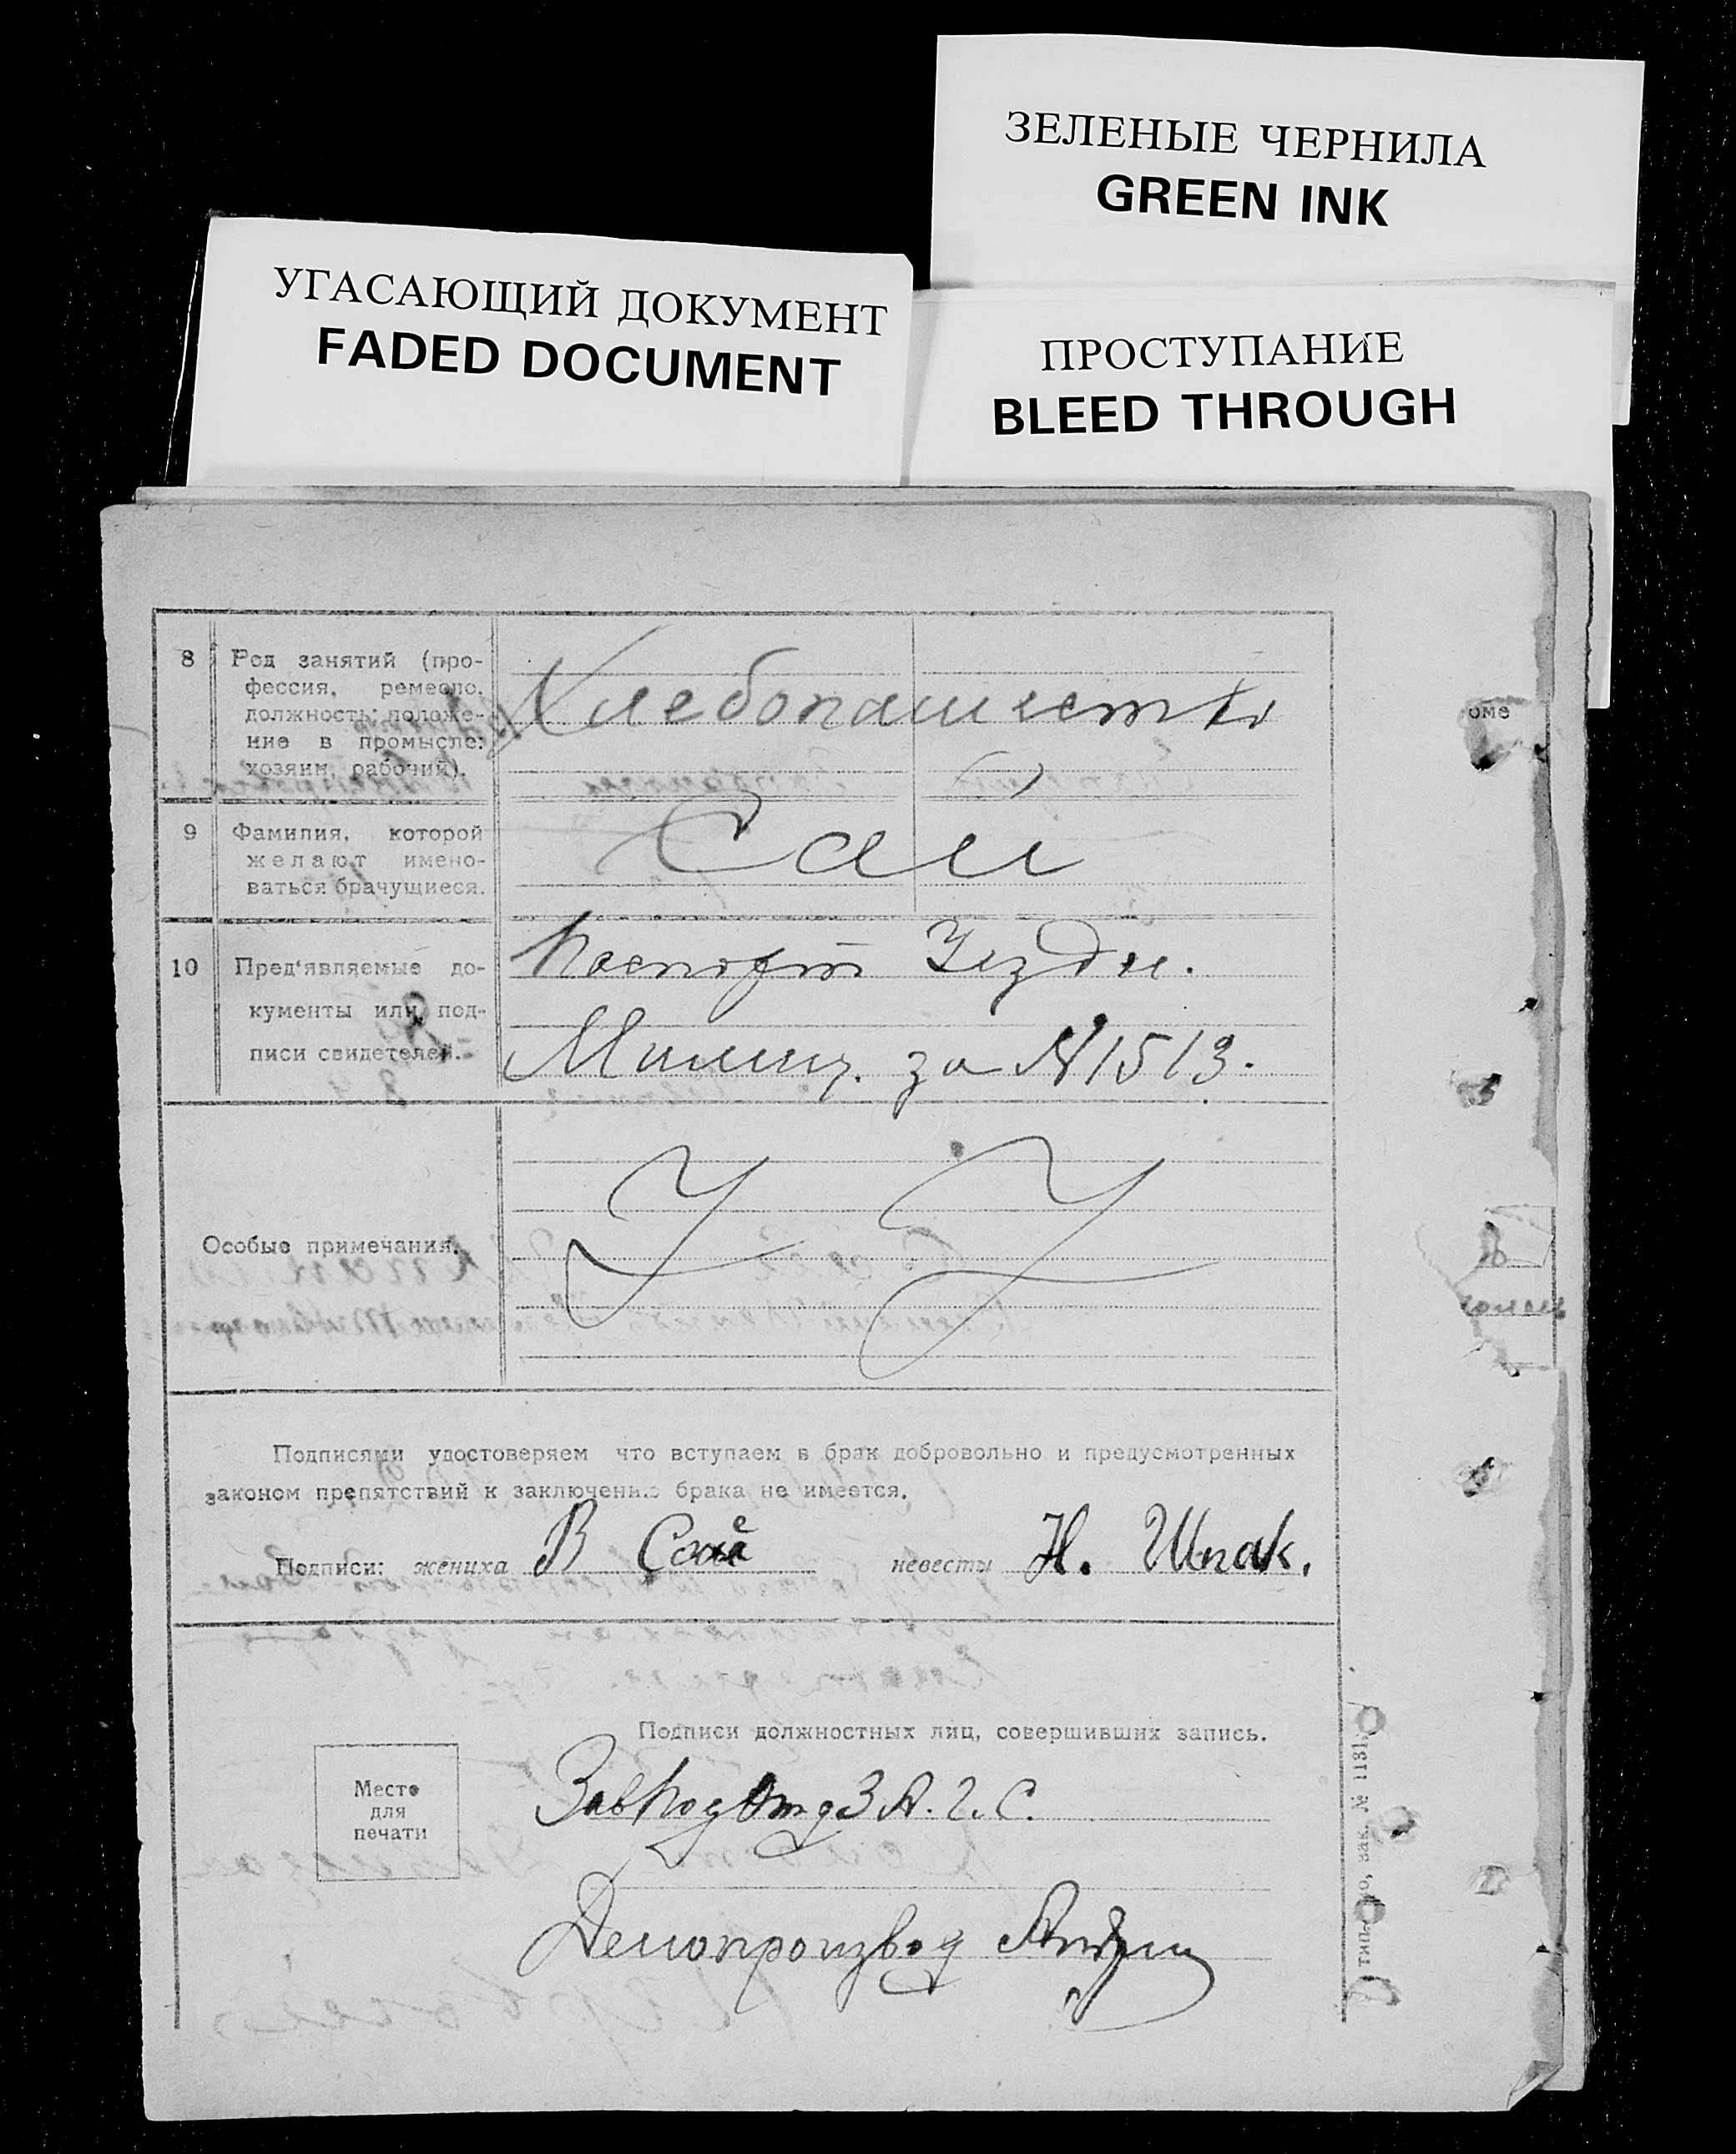 ЗЕЛЕНЫЕ ЧЕРНИЛА
GREEN INK
УГАСАЮЩИЙ ДОКУМЕНТ
FADED DOCUMENT
ПРОСТУПАНИЕ
BLEED THROUGH
8 Род занятий (про-
фессия, ремесло,
должность; положе-
ние в промысле:
хозяин, рабочий).
Хлебопашество
9 Фамилия, которой
желают имено-
ваться брачущиеся.
Сай
10 Пред'являемые до-
кументы или под-
писи свидетелей.
Паспорт Уездн.
Милиц. за № 1513.
Особые примечания.
Подписями удостоверяем что вступаем в брак добровольно и предусмотренных
законом препятствий к заключению брака не имеется.
Подписи: жениха В невесты Н. Шпак.
Подписи должностных лиц, совершивших запись.
Место
для
печати
ЗавПодОтд З А. Г. С.
Делопроизвод
оме